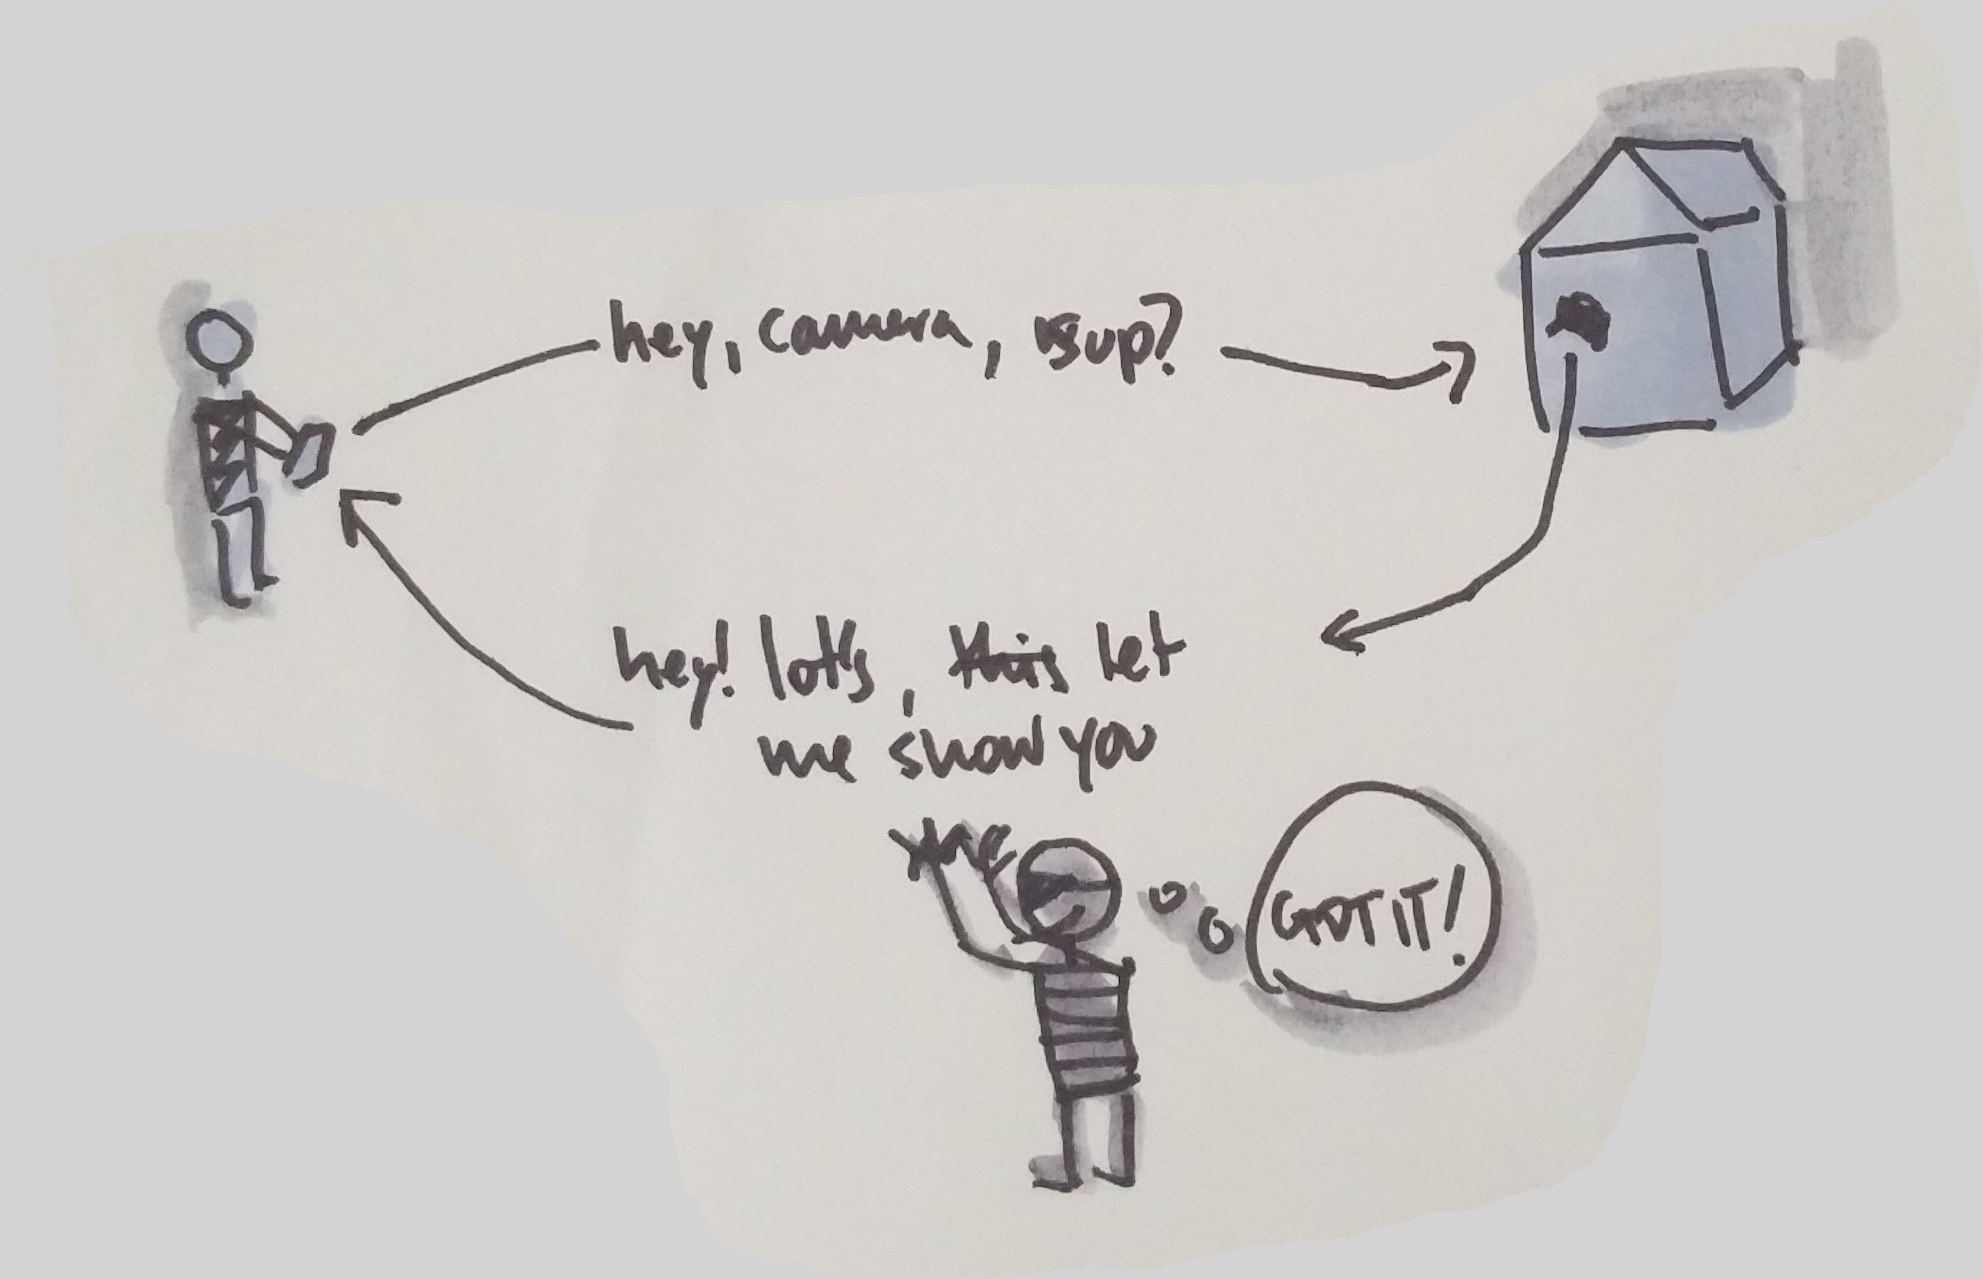 hey, camera, wsup?
hey! lots, this let
me show you
GOT IT!